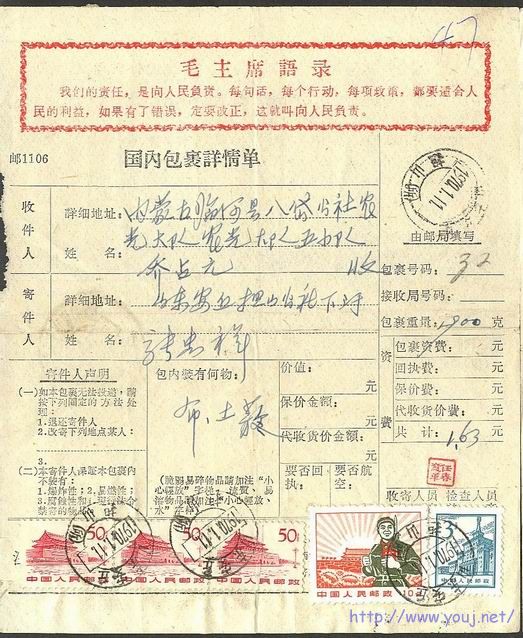 47
毛主席語录
我们的責任，是向人民負責。每句話，每个行动，每項政策，都要适合人
民的利益，如果有了错誤，定要改正，这就叫向人民負責。
邮1106
国内包裹詳情单
1970.1.11
由邮局填写
收件人
詳細地址：内蒙古临河县八岱公社农
光大队农光大队五小队
姓名：乔占元 收
寄件人
詳細地址：山东安丘
姓名：
包裹号码：32
接收局号码：
包裹重量：2900 克
资费
包裹资费： 元
回执费： 元
保价费： 元
代收货价费： 元
共计：1.63 元
寄件人声明
（一）如本包裹无法投递，請
按下列圈定的方法处
理：
1.退还寄件人
2.改寄下列地点某人：
3.
（二）本寄件人保証本包裹内
不装有：
1.爆炸性；2.易燃性；
包内装有何物：
布
价值： 元
保价金额： 元
代收货价金额： 元
（脆弱易碎物品請加注“小
要否回执
要否航空
收寄人员
检查人员
50
50
50
中国人民邮政
中国人民邮政
中国人民邮政
中国人民邮政
10
中国人民邮政
1970.1.11
http://www.youj.net/